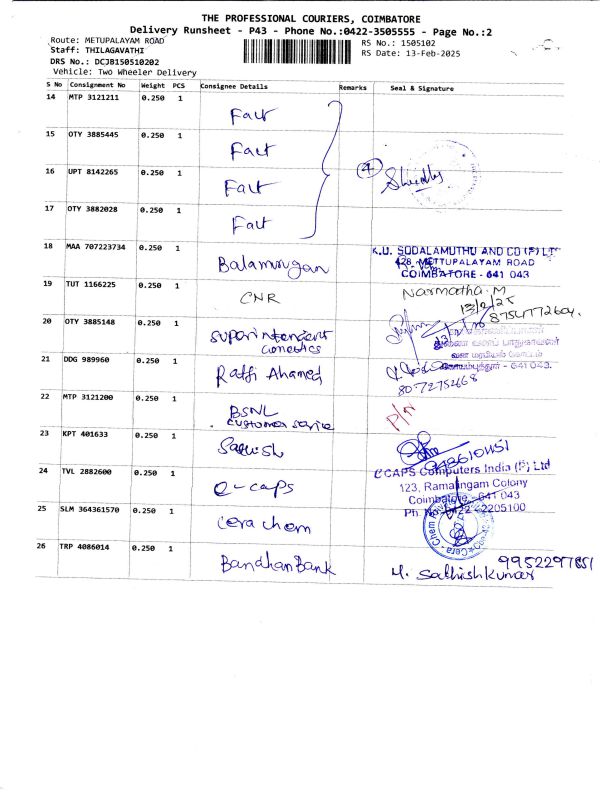 THE PROFESSIONAL COURIERS, COIMBATORE
Delivery Runsheet - P43 - Phone No.:0422-3505555 - Page No.:2
Route: METUPALAYAM ROAD
Staff: THILAGAVATHI
DRS No.: DCJB150510202
Vehicle: Two Wheeler Delivery
RS No.: 1505102
RS Date: 13-Feb-2025
S No Consignment No Weight PCS Consignee Details Remarks Seal & Signature
14 MTP 3121211 0.250 1 Fact
15 OTY 3885445 0.250 1 Fact
16 UPT 8142265 0.250 1 Fact
4
17 OTY 3882028 0.250 1 Fact
18 MAA 707223734 0.250 1 Balamurugan
K.U. SODALAMUTHU AND CO (P) LTD
428, METTUPALAYAM ROAD
COIMBATORE - 641 043
19 TUT 1166225 0.250 1 CNR
Narmatha. M
13/2/25
20 OTY 3885148 0.250 1 Superintendent
21 DDG 989960 0.250 1 Rafi Ahamed
8072752668
22 MTP 3121200 0.250 1 BSNL
customer service
P/N
23 KPT 401633 0.250 1 Sathish
24 TVL 2882600 0.250 1 e-caps
CCAPS Computers India (P) Ltd
123, Ramalingam Colony
Coimbatore - 641 043
Ph No 0422-2205100
25 SLM 364361570 0.250 1 cera chem
26 TRP 4086014 0.250 1 Bandhan Bank
M. Sathishkumar